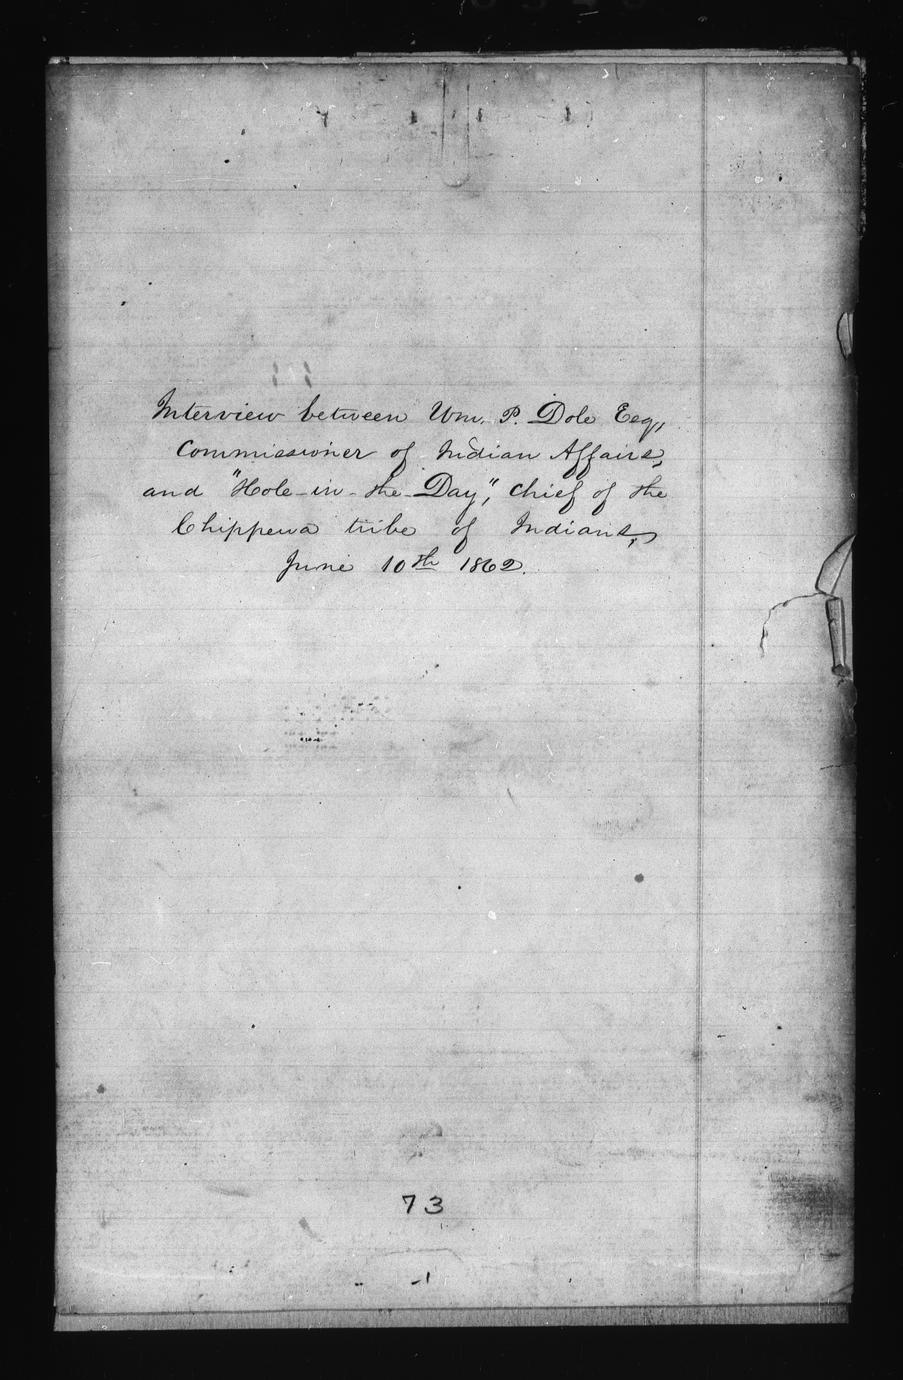 Interview between Wm. P. Dole Esq,
Commissioner of Indian Affairs,
and "Hole-in-the-Day", Chief of the
Chippewa tribe of Indians,
June 10th 1862.
73